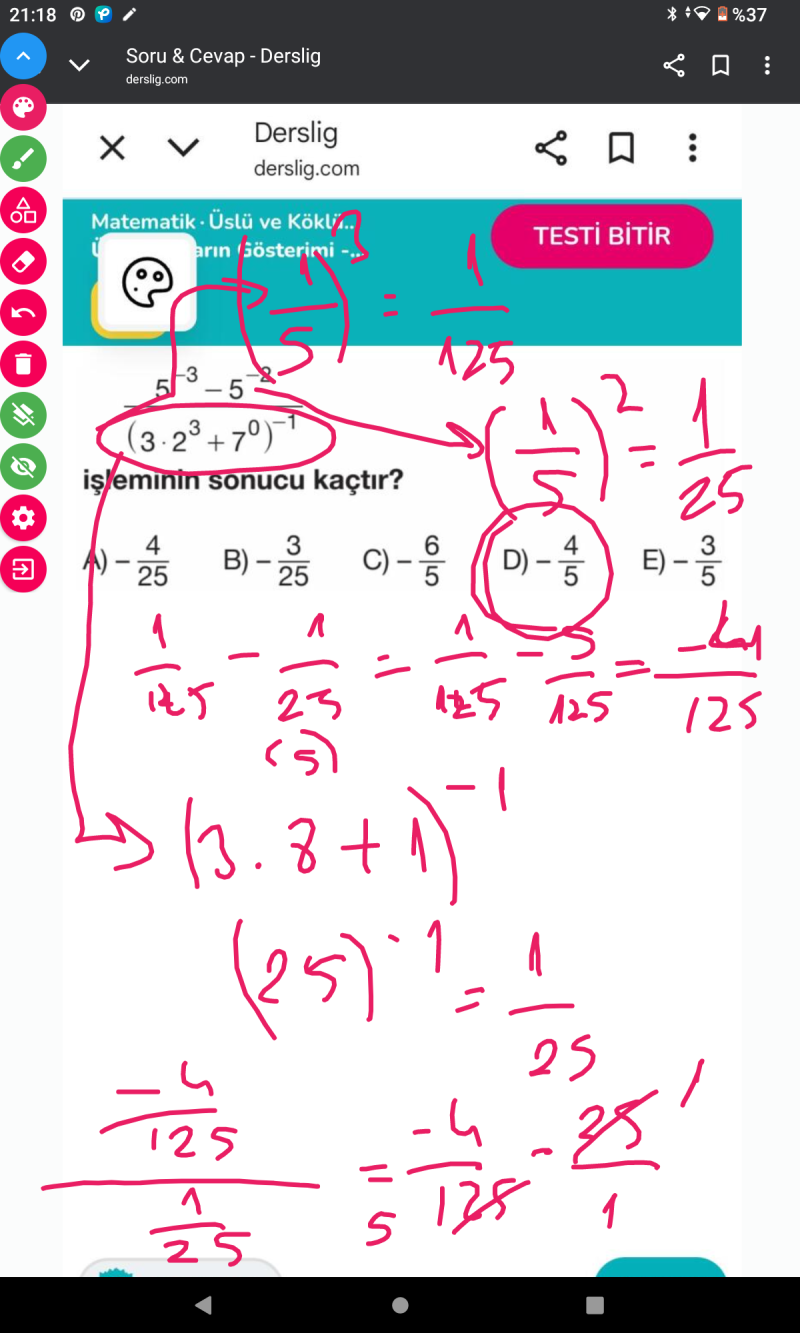 21:18 %37
Soru & Cevap - Derslig
derslig.com
Derslig
derslig.com
Matematik · Üslü ve Köklü...
Gösterimi -...
TESTİ BİTİR
(1/5)³ = 1/125
5⁻³ − 5⁻²
(3 · 2³ + 7⁰)⁻¹
işleminin sonucu kaçtır?
(1/5)² = 1/25
A) − 4/25 B) − 3/25 C) − 6/5 D) − 4/5 E) − 3/5
1/125 − 1/25 = 1/125 − 5/125 = −4/125
(5)
(3 . 8 + 1)⁻¹
(25)⁻¹ = 1/25
−4/125
1/25
= −4/125 - 25/1
5 1